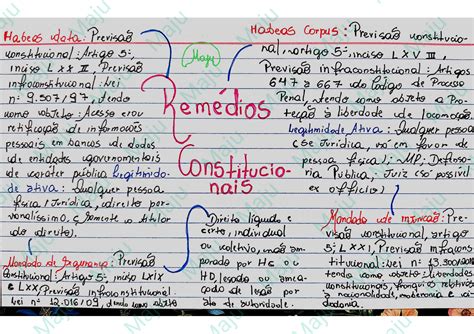 Habeas data: Previsão
constitucional: Artigo 5º,
inciso LXXII, Previsão
infraconstitucional: Lei
nº 9.507/97, tendo
como objeto: Acesso e/ou
retificação de informações
pessoais em bancos de dados
de entidades governamentais
de caráter público. Legitimida-
de ativa: Qualquer pessoa
física/Jurídica, direito per-
sonalíssimo (somente o titular
do direito).
Mandado de Segurança: Previsão
Constitucional: Artigo 5º, inciso LXIX
e LXX/Previsão infraconstitucional:
Lei nº 12.016/09, tendo como objeto
Maju
Remédios
Constitucio-
nais
Direito líquido e
certo, individual
ou coletivo, não am-
parado por HC ou
HD, lesado ou amea-
çado de lesão por
ato de autoridade.
Habeas Corpus: Previsão constitucio-
nal, artigo 5º, inciso LXVIII,
Previsão infraconstitucional: Artigos
647 à 667 do Código de Processo
Penal, tendo como objeto a Pro-
teção à liberdade de locomoção.
Legitimidade Ativa: Qualquer pessoa
(se Jurídica, só em favor de
pessoa física); MP; Defenso-
ria Pública, Juiz (só possível
ex officio)
Mandado de injunção: Pre-
visão constitucional, artigo
5º, LXXI, Previsão infracons-
titucional: Lei nº 13.300/2016
tendo como objeto: Liberdades
constitucionais, prerrogativas relativas
à nacionalidade, soberania e ci-
dadania.